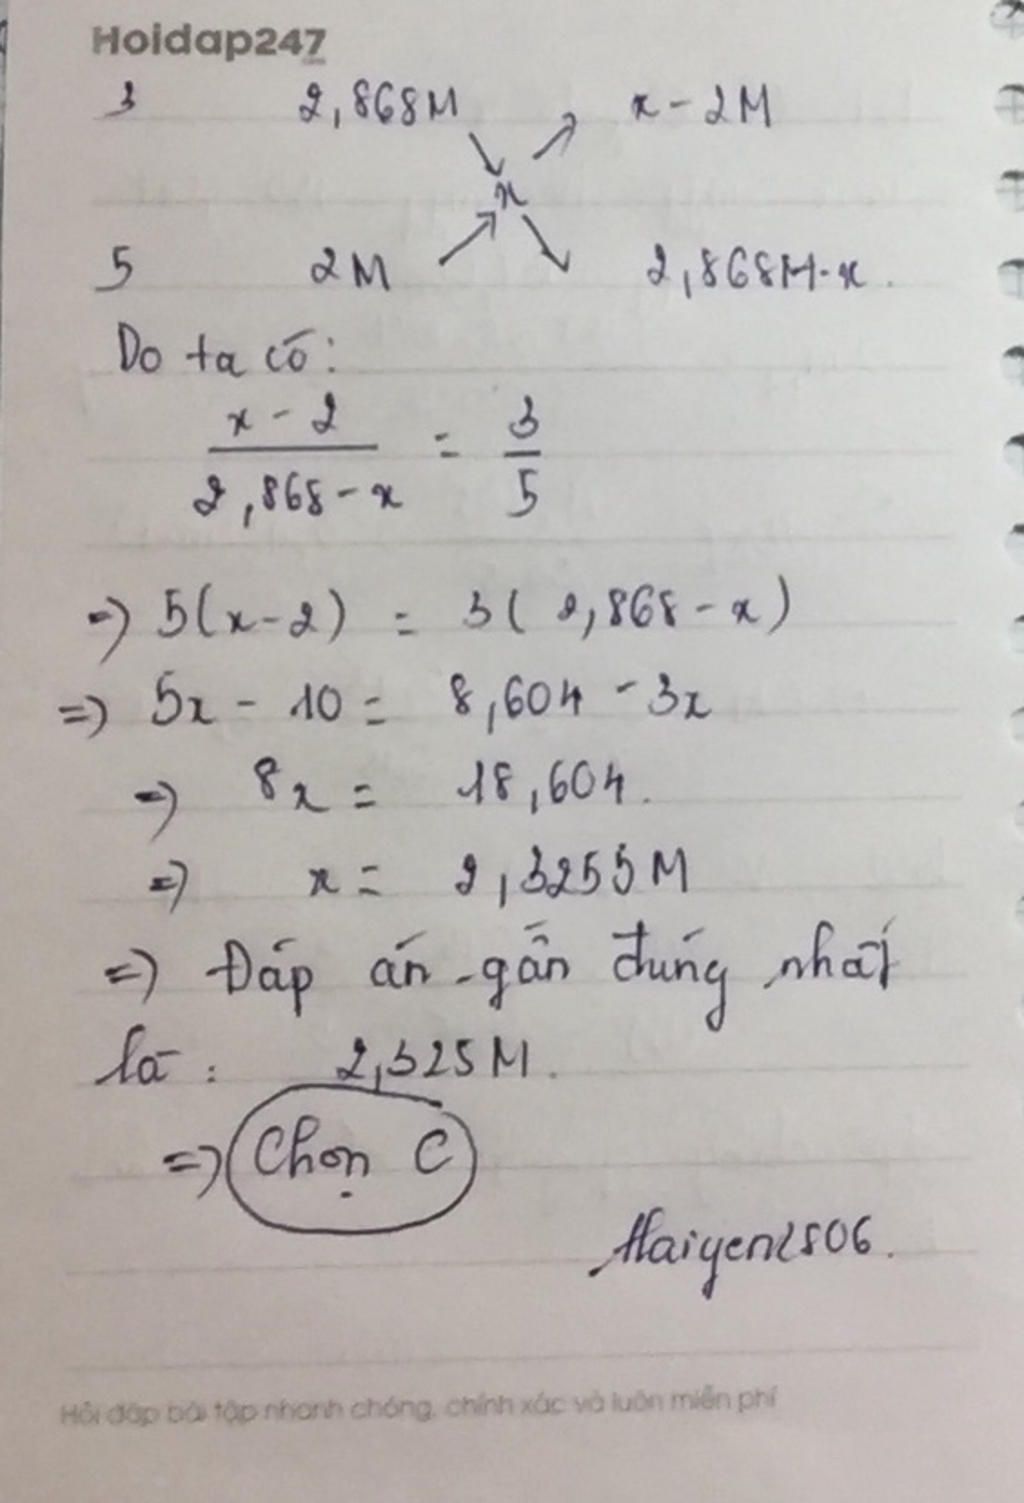 Hoidap247
3 2,868M x - 2M
x
5 2M 2,868M - x
Do ta có:
x - 2 = 3
2,868 - x 5
=> 5(x-2) = 3(2,868 - x)
=> 5x - 10 = 8,604 - 3x
=> 8x = 18,604.
=> x = 2,3255M
=> Đáp án gần đúng nhất
là : 2,325M.
=> Chọn C
Haiyen2806.
Hỏi đáp bài tập nhanh chóng, chính xác và luôn miễn phí